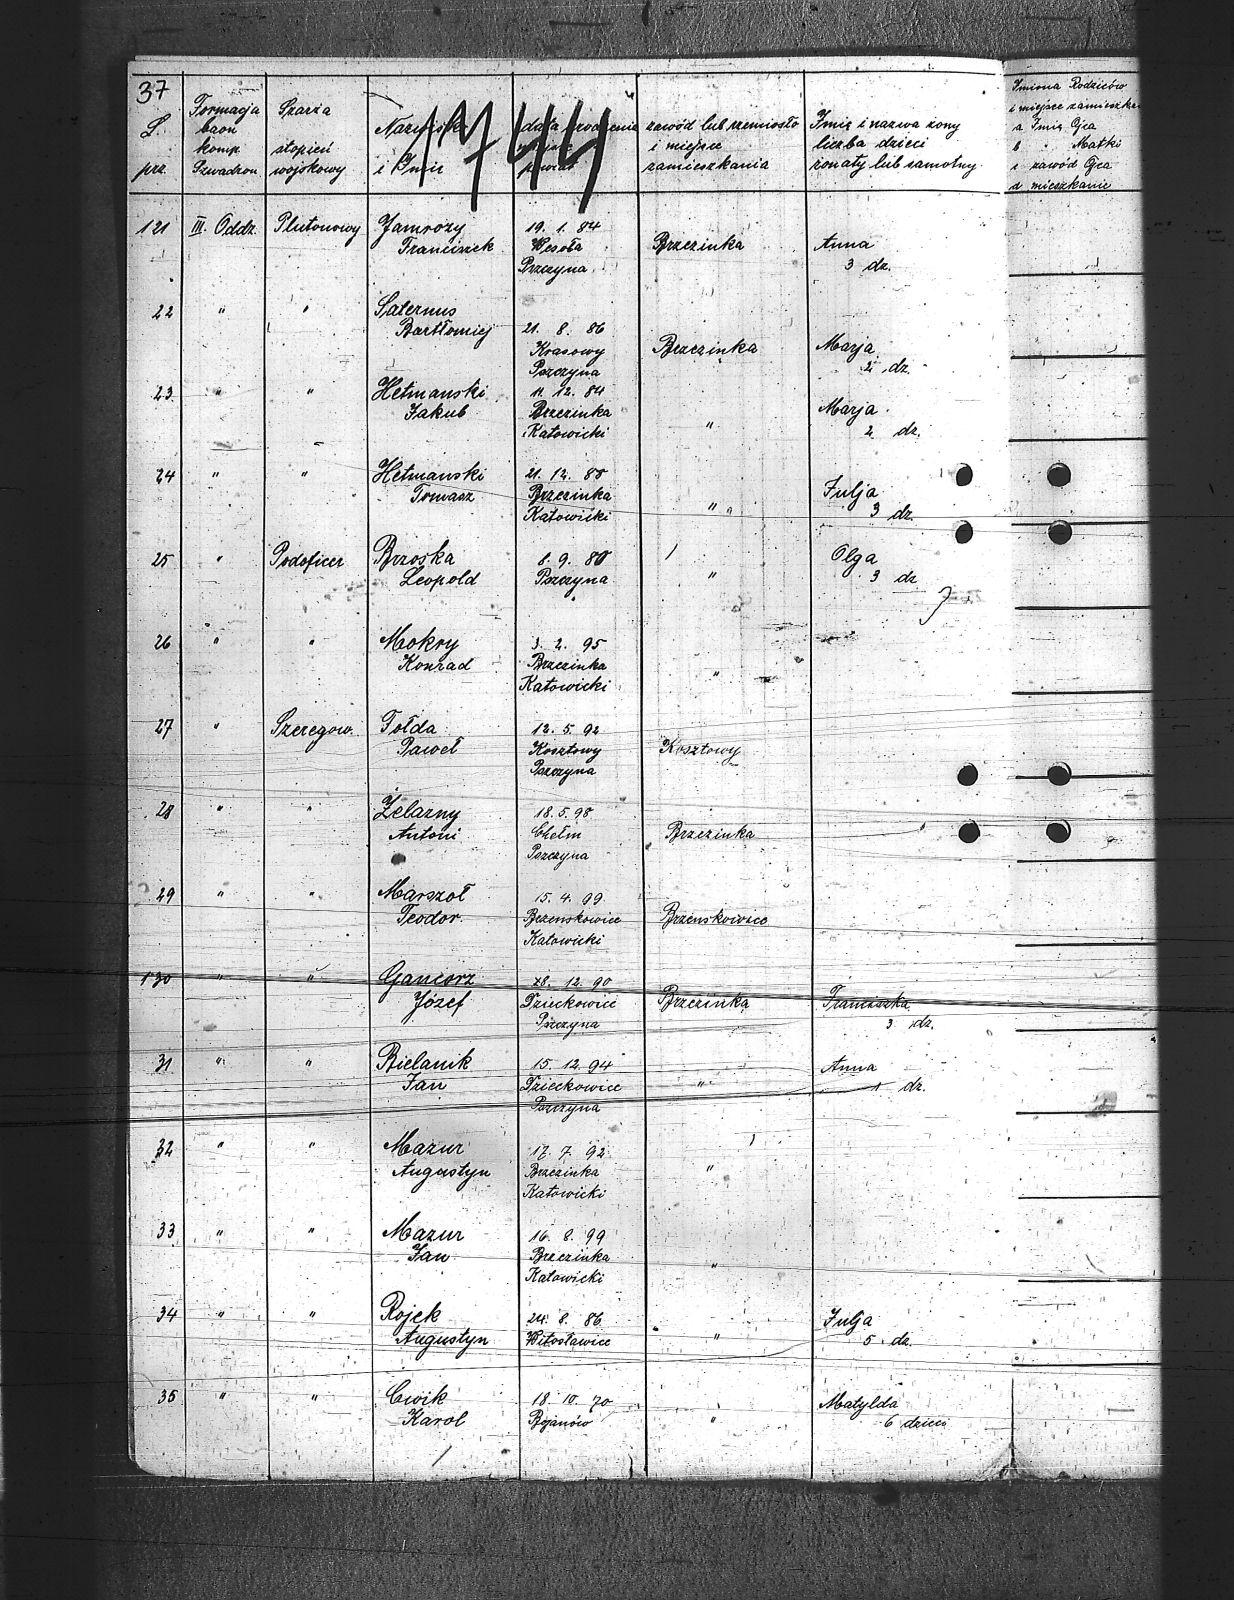 37
L. prz.
Formacja baon komp Szwadron
Szarża stopień wojskowy
Nazwisko i Imię
data urodzenia powiat
zawód lub rzemiosło i miejsce zamieszkania
Imię i nazwa żony liczba dzieci żonaty lub samotny
Imiona Rodziców i miejsce zamieszka
a Imię Ojca
b " Matki
c zawód Ojca
d mieszkanie
1744
121 III. Oddz. Plutonowy Jamrozy 19. 1. 84
Franciszek Wesoła Brzezinka Anna
Pszczyna 3 dz.
22 " " Saternus
Bartłomiej 21. 8. 86
Krasowy Brzezinka Marja
Pszczyna 2 dz.
23 " " Hetmanski 11. 12. 84
Jakub Brzezinka Marja
Katowicki " 2 dz.
24 " " Hetmanski 21. 12. 88
Tomasz Brzezinka Julja
Katowicki " 3 dz.
25 " Podoficer Brzoska 8. 9. 88 Olga
Leopold Pszczyna " 3 dz
26 " " Mokry 3. 2. 95
Konrad Brzezinka
Katowicki "
27 " Szeregow. Fołda 12. 5. 92
Paweł Kosztowy Kosztowy
Pszczyna
28 " " Żelazny 18. 5. 98
Antoni Chełm Brzezinka
Pszczyna
29 " " Marszoł 15. 4. 99
Teodor Brzenskowice Brzenskowice
Katowicki
130 " " Gancorz 28. 12. 90
Józef Dzieckowice Brzezinka Franciszka
Pszczyna 3 dz.
31 " " Bielanik 15. 12. 94 Anna
Jan Dzieckowice " 1 dz.
Pszczyna
32 " " Mazur 17. 7. 92
Augustyn Brzezinka "
Katowicki
33 " " Mazur 16. 8. 99
Jan Brzezinka
Katowicki "
34 " " Rojek 24. 8. 86 Julja
Augustyn Witosławice " 5 dz.
35 " " Cwik 18. 10. 70 Matylda
Karol Bojanów " 6 dzieci